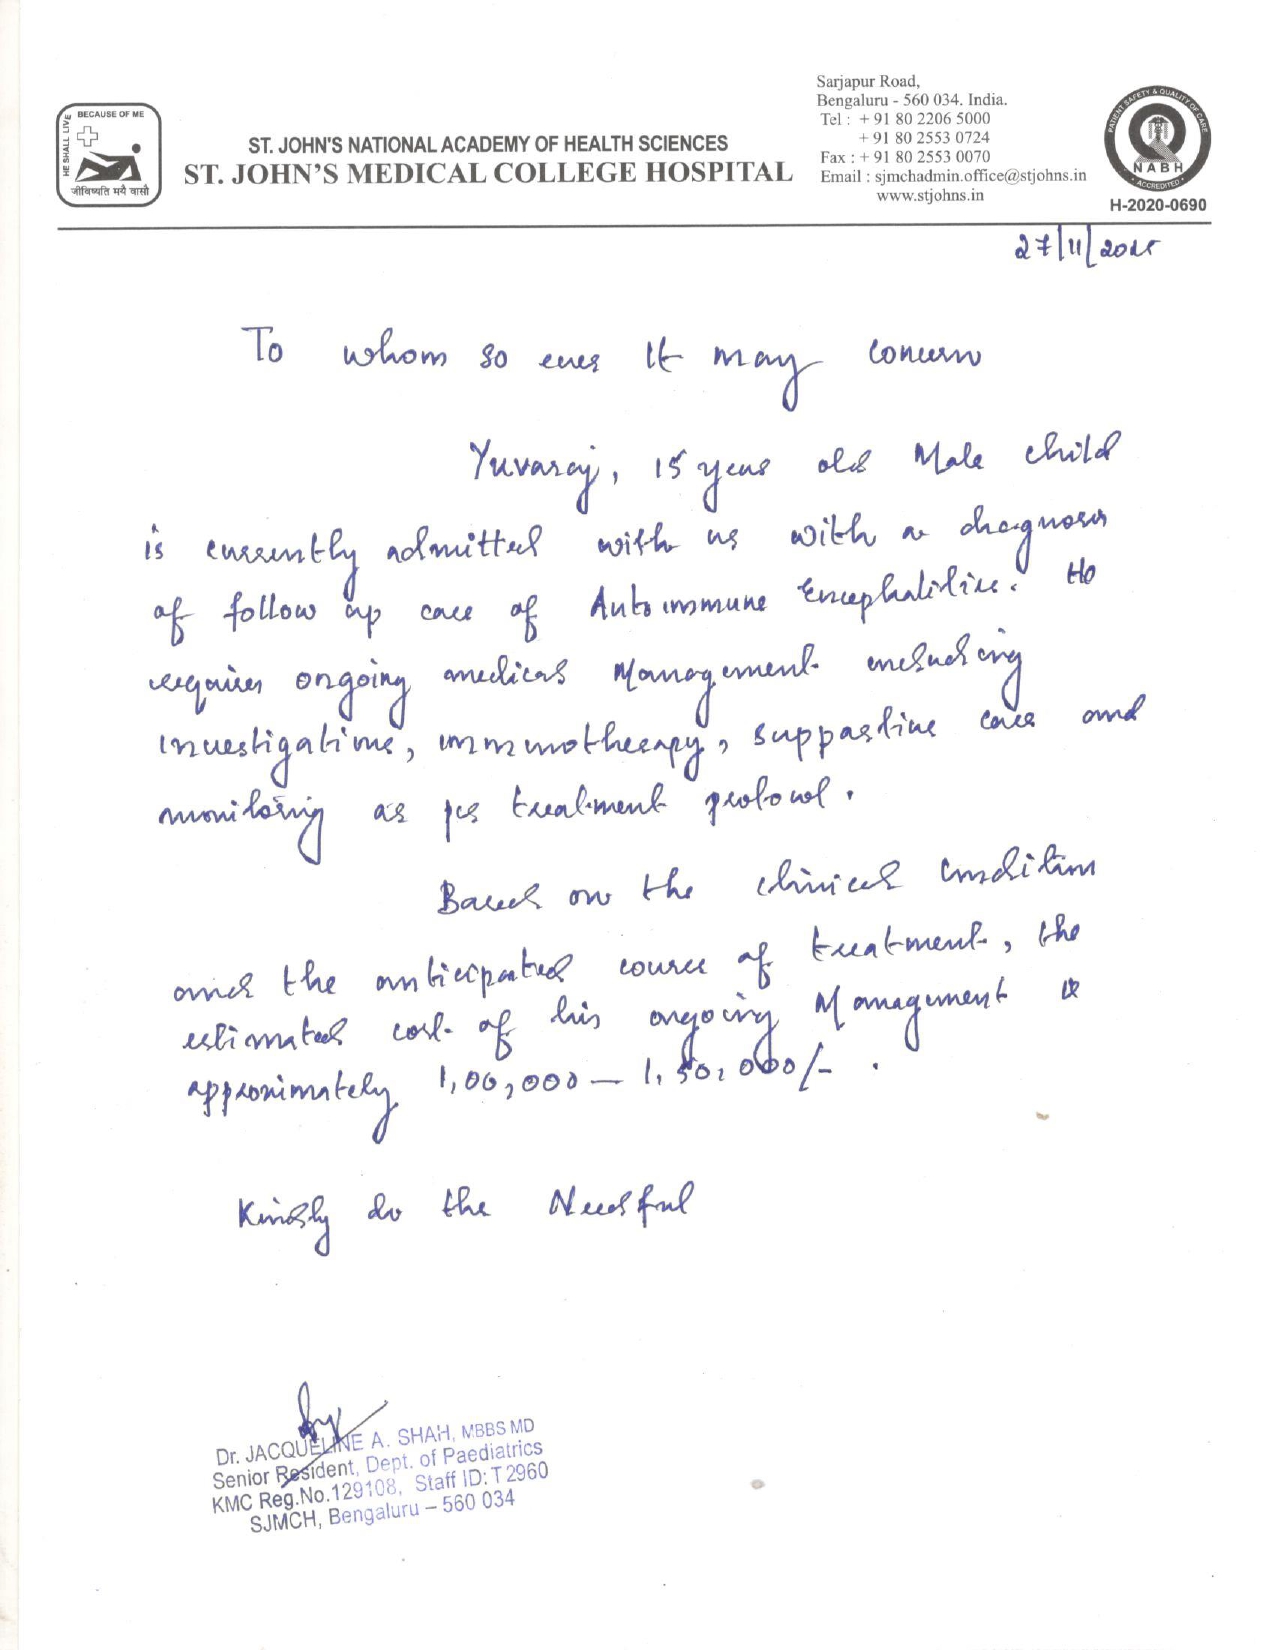 HE SHALL LIVE
BECAUSE OF ME
जीविष्यति मयै वासौ
ST. JOHN'S NATIONAL ACADEMY OF HEALTH SCIENCES
ST. JOHN'S MEDICAL COLLEGE HOSPITAL
Sarjapur Road,
Bengaluru - 560 034. India.
Tel : + 91 80 2206 5000
+ 91 80 2553 0724
Fax : + 91 80 2553 0070
Email : sjmchadmin.office@stjohns.in
www.stjohns.in
PATIENT SAFETY & QUALITY OF CARE
NABH
ACCREDITED
H-2020-0690
27/11/2025
To whom so ever It may concern
Yuvaraj, 15 years old Male child
is currently admitted with us with a diagnosis
of follow up case of Autoimmune Encephalitis. He
requires ongoing medical Management including
investigations, immunotherapy, supportive care and
monitoring as per treatment protocol.
Based on the clinical condition
and the anticipated course of treatment, the
estimated cost of his ongoing Management is
approximately 1,00,000 – 1,50,000/- .
Kindly do the Needful
Dr. JACQUELINE A. SHAH, MBBS MD
Senior Resident, Dept. of Paediatrics
KMC Reg.No.129108, Staff ID: T2960
SJMCH, Bengaluru – 560 034